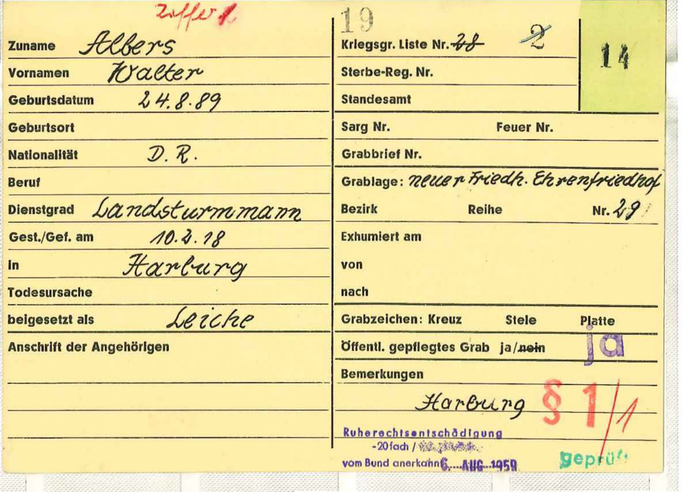 Ziffer 1
Zuname Albers
Vornamen Walter
Geburtsdatum 24.8.89
Geburtsort
Nationalität D.R.
Beruf
Dienstgrad Landsturmmann
Gest./Gef. am 10.2.18
in Harburg
Todesursache
beigesetzt als Leiche
Anschrift der Angehörigen
19
Kriegsgr. Liste Nr. 28 2
14
Sterbe-Reg. Nr.
Standesamt
Sarg Nr. Feuer Nr.
Grabbrief Nr.
Grablage: neuer Friedh. Ehrenfriedhof
Bezirk Reihe Nr. 29
Exhumiert am
von
nach
Grabzeichen: Kreuz Stele Platte
Öffentl. gepflegtes Grab ja/nein ja
Bemerkungen
Harburg § 1/1
Ruherechtsentschädigung
-20fach /
vom Bund anerkannt 6. AUG. 1959
geprüft